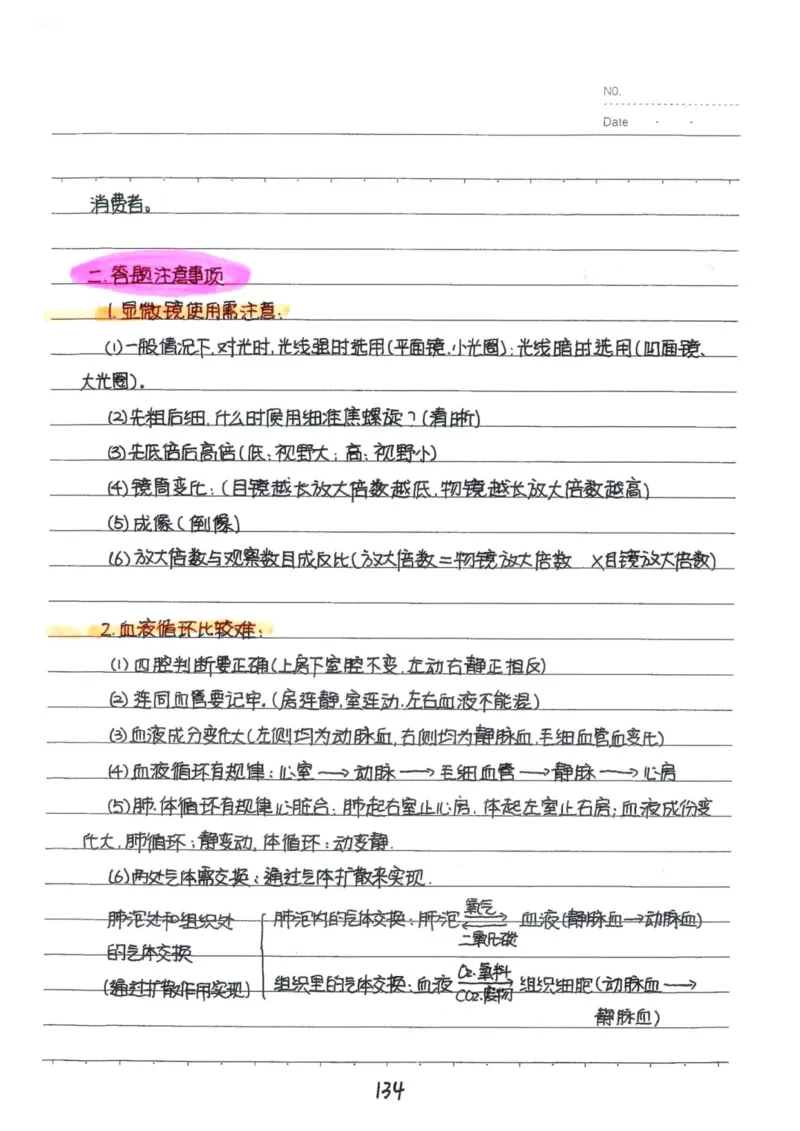 NO.
Date
消费者。
二.答题注意事项
1.显微镜使用需注意:
(1)一般情况下,对光时,光线强时选用(平面镜、小光圈);光线暗时选用(凹面镜、
大光圈)。
(2)先粗后细,什么时候用细准焦螺旋?(清晰)
(3)先低倍后高倍(低:视野大;高:视野小)
(4)镜筒变化:(目镜越长放大倍数越低,物镜越长放大倍数越高)
(5)成像(倒像)
(6)放大倍数与观察数目成反比(放大倍数=物镜放大倍数 ×目镜放大倍数)
2.血液循环比较难:
(1)四腔判断要正确(上房下室腔不变,左动右静正相反)
(2)连同血管要记牢,(房连静,室连动,左右血液不能混)
(3)血液成分变化大(左侧均为动脉血,右侧均为静脉血,毛细血管血变化)
(4)血液循环有规律:心室→动脉→毛细血管→静脉→心房
(5)肺.体循环有规律心脏合:肺起右室止心房.体起左室止右房;血液成份变
化大,肺循环:静变动,体循环:动变静.
(6)两处气体需交换:通过气体扩散来实现.
肺泡处和组织处
的气体交换
(通过扩散作用实现)
肺泡内的气体交换:肺泡 氧气 ⇌ 二氧化碳 血液(静脉血→动脉血)
组织里的气体交换:血液 O2.氧料 ⇌ CO2.废物 组织细胞(动脉血→
静脉血)
134